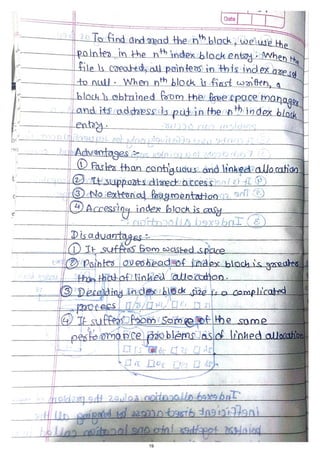 Date
To find and read the nth block, we use the
pointer, in the nth index block entry. When the
file is created, all pointers in this index are set
to null. When nth block is first written, a
block is obtained from the free space manager
and its address is put in the nth index block
entry.
Advantages :-
① Faster than contiguous and linked allocation
② It supports direct access
③ No external fragmentation
④ Accessing index block is easy
Disadvantages :-
① It suffers from wasted space
② Pointer overhead of index block is greater
than that of linked allocation.
③ Deciding index block size is a complicated
process
④ It suffers from some of the same
performance problems as of linked allocation